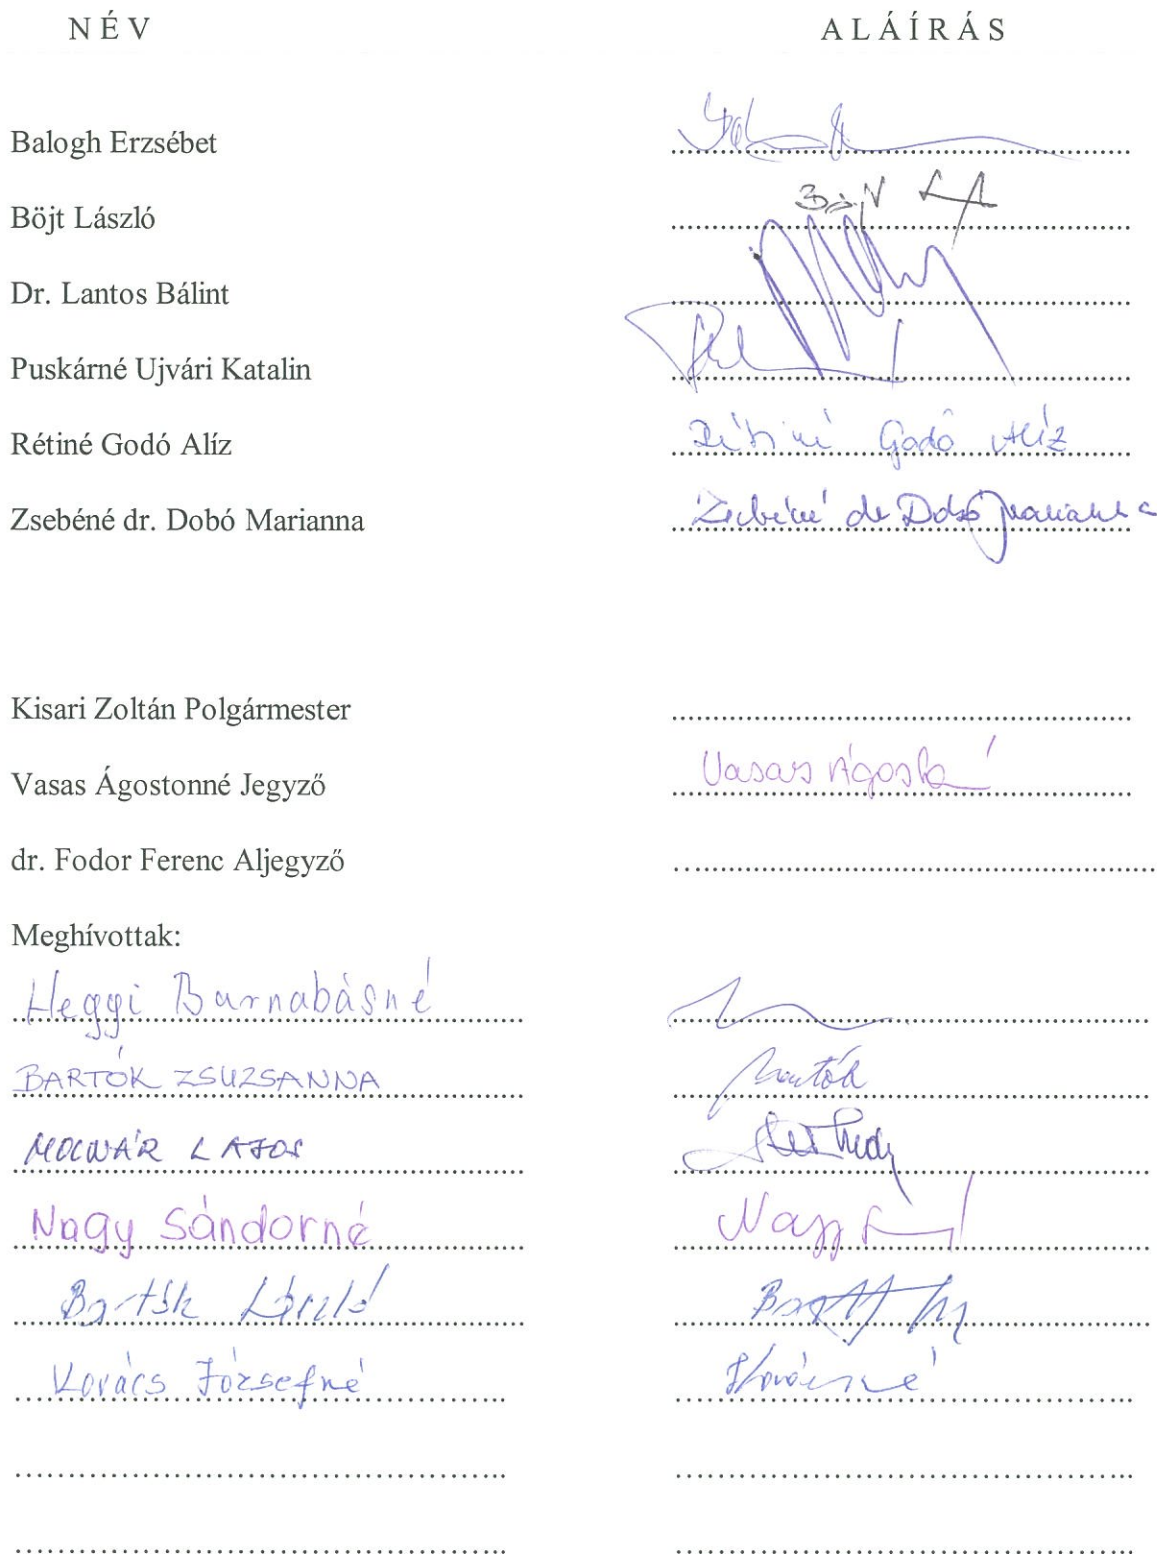 NÉV ALÁÍRÁS
Balogh Erzsébet
Böjt László
Dr. Lantos Bálint
Puskárné Ujvári Katalin
Rétiné Godó Alíz Rétiné Godó Alíz
Zsebéné dr. Dobó Marianna Zsebéné dr Dobó Marianna
Kisari Zoltán Polgármester
Vasas Ágostonné Jegyző Vasas
dr. Fodor Ferenc Aljegyző
Meghívottak:
Heggi Barnabásné
BARTÓK ZSUZSANNA Bartók
MOLNÁR LAJOS
Nagy Sándorné Nagy
Bartók László
Kovács Józsefné Kovácsné